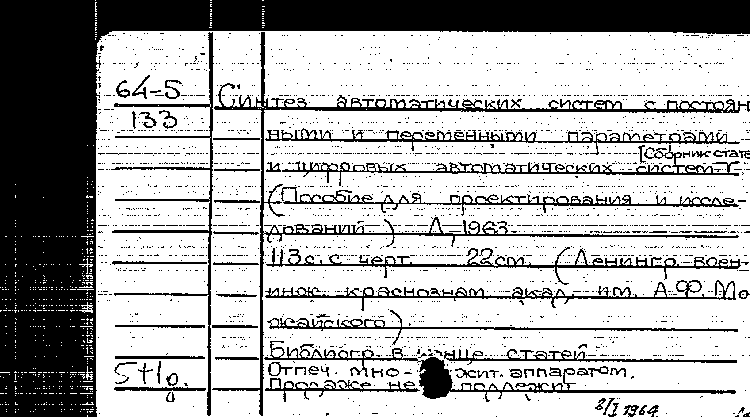 64-5
133
Синтез автоматических систем с постоян
ными и переменными параметрами
[Сборник стате
и цифровых автоматических систем
(Пособие для проектирования и иссле-
дований) Л, 1963.
113 с. с черт. 22см. (Ленингр. воен-
инж. краснознам. акад. им. А.Ф. Мо
жайского).
Библиогр. в конце статей
Отпеч. мно- жит. аппаратом.
Продаже не подлежит
2/I 1964